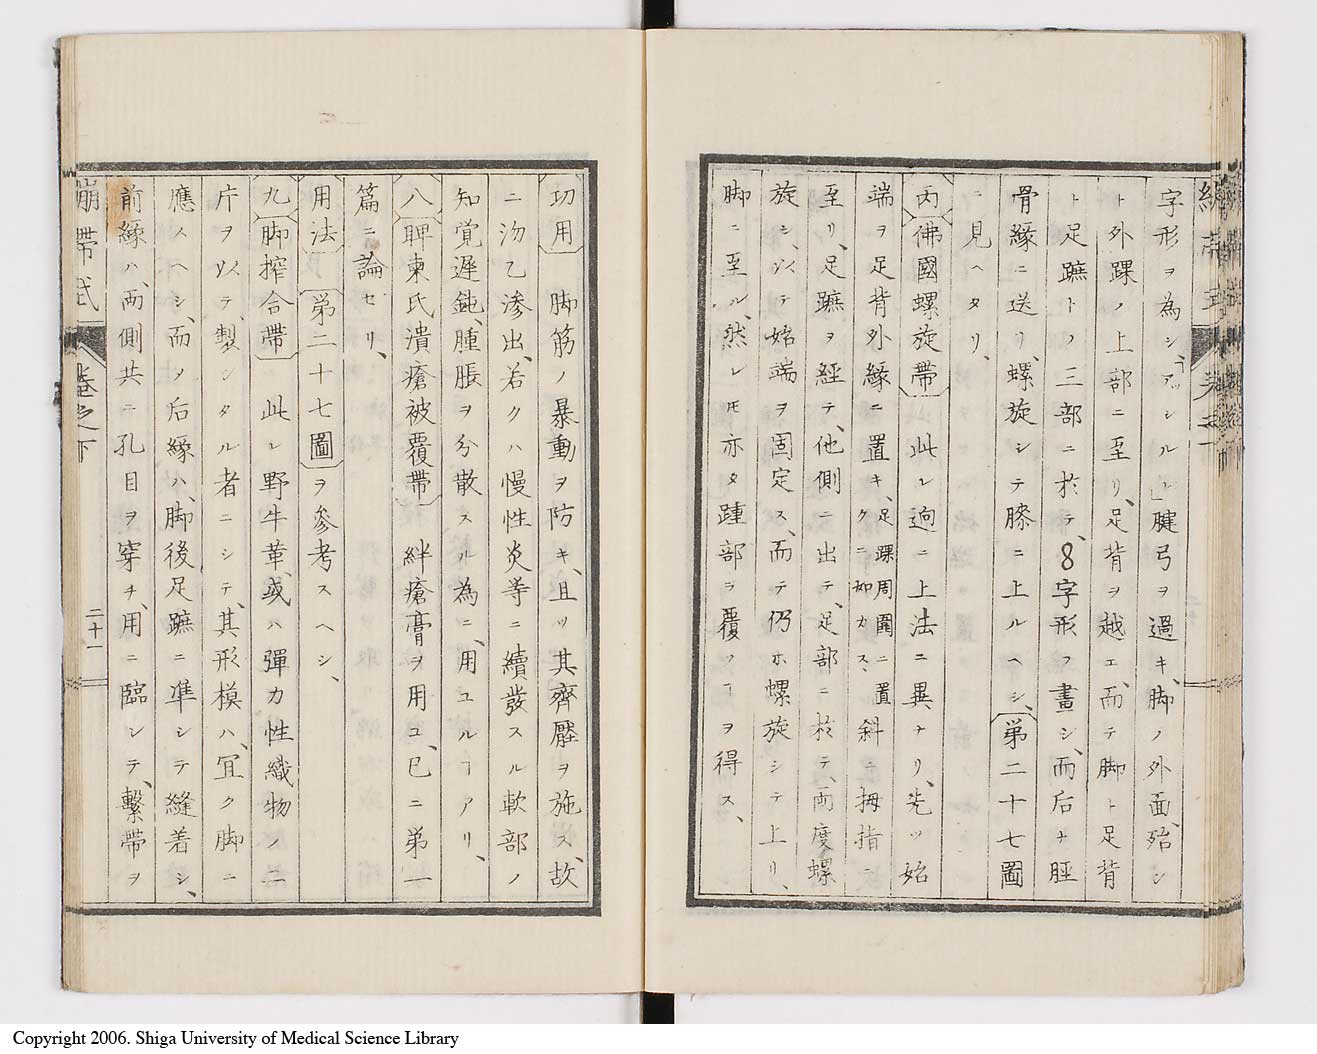 字形ヲ為シ、アッシルレ」腱弓ヲ過キ、脚ノ外面、殆シ
ト外踝ノ上部ニ至リ、足背ヲ越エ、而テ脚ト足背
ト足蹠トノ三部ニ於テ、8字形ヲ畫シ、而后ナ脛
骨縁ニ送リ、螺旋シテ膝ニ上ルヘシ、第二十七圖
ニ見ヘタリ、
丙佛國螺旋帶 此レ逈ニ上法ニ異ナリ、先ツ始
端ヲ足背外縁ニ置キ、足踝周圍ニ置クニ如カス、斜ニ拇指ニ
至リ、足蹠ヲ経テ、他側ニ出テ、足部ニ於テ、両度螺
旋シ、以テ始端ヲ固定ス、而テ仍ホ螺旋シテ上リ、
脚ニ至ル、然レ𪜈亦タ踵部ヲ覆フヿヲ得ス、
功用 脚筋ノ暴動ヲ防キ、且ツ其齊壓ヲ施ス、故
ニ沕乙滲出、若クハ慢性炎等ニ續發スル軟部ノ
知覚遅鈍、腫脹ヲ分散スル為ニ、用ユルヿアリ、
八 䀝柬氏潰瘡被覆帶 絆瘡膏ヲ用ユ、已ニ第一
篇ニ論セリ、
用法 第二十七圖ヲ参考スヘシ、
九 脚搾合帶 此レ野牛革、或ハ彈力性織物ノ一
片ヲ以テ、製シタル者ニシテ、其形模ハ、冝ク脚ニ
應スヘシ、而ノ后縁ハ、脚後足蹠ニ準シテ縫着シ、
前縁ハ、両側共ニ孔目ヲ穿チ、用ニ臨ンテ、繋帶ヲ
繃帶式 卷之下 二十一